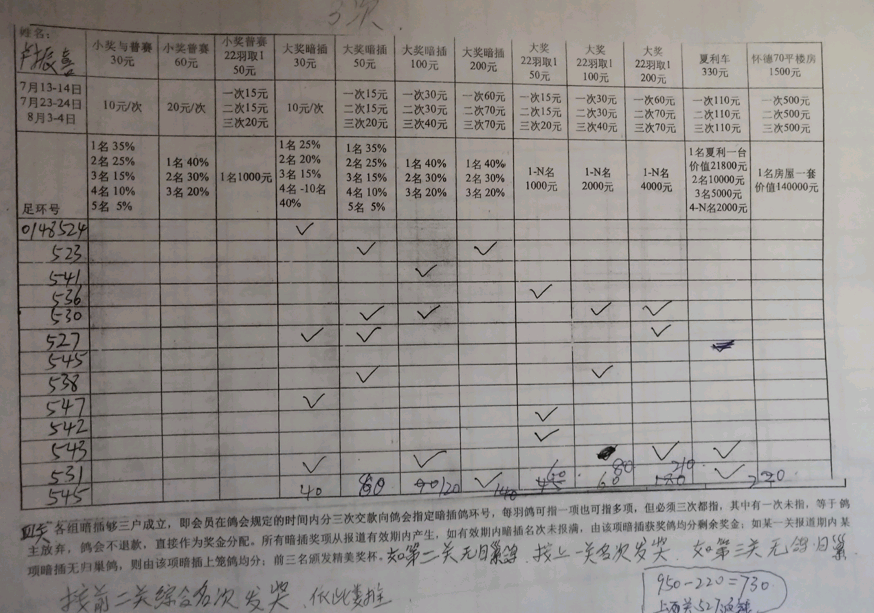 3次
姓名:
卢振喜
小奖与普赛 30元 小奖普赛 60元 小奖普赛 22羽取1 50元 大奖暗插 30元 大奖暗插 50元 大奖暗插 100元 大奖暗插 200元 大奖 22羽取1 50元 大奖 22羽取1 100元 大奖 22羽取1 200元 夏利车 330元 怀德70平楼房 1500元
7月13-14日
7月23-24日
8月3-4日
10元/次 20元/次 一次15元 二次15元 三次20元 10元/次 一次15元 二次15元 三次20元 一次30元 二次30元 三次40元 一次60元 二次70元 三次70元 一次15元 二次15元 三次20元 一次30元 二次30元 三次40元 一次60元 二次70元 三次70元 一次110元 二次110元 三次110元 一次500元 二次500元 三次500元
足环号
1名 35% 2名 25% 3名 15% 4名 10% 5名 5% 1名 40% 2名 30% 3名 20% 1名1000元 1名 25% 2名 20% 3名 15% 4名 -10名 40% 1名 35% 2名 25% 3名 15% 4名 10% 5名 5% 1名 40% 2名 30% 3名 20% 1名 40% 2名 30% 3名 20% 1-N名 1000元 1-N名 2000元 1-N名 4000元 1名夏利一台 价值21800元 2名10000元 3名5000元 4-N名2000元 1名房屋一套 价值140000元
0148524 ✓
523 ✓ ✓
541 ✓
536 ✓
530 ✓ ✓ ✓ ✓
527 ✓ ✓ ✓
545
538 ✓ ✓
547 ✓
542 ✓
543 ✓ ✓ ✓
531 ✓ ✓ 80 210 ✓
545 40 120 ✓ 140 60 180 220
各组暗插够三户成立，即会员在鸽会规定的时间内分三次交款向鸽会指定暗插鸽环号，每羽鸽可指一项也可指多项，但必须三次都指，其中有一次未指，等于鸽
主放弃，鸽会不退款，直接作为奖金分配，所有暗插奖项从报道有效期内产生，如有效期内暗插名次未报满，由该项暗插获奖鸽均分剩余奖金，如某一关报道期内某
项暗插无归巢鸽，则由该项暗插上笼鸽均分；前三名颁发精美奖杯。如第二关无归巢鸽 按上一关名次发奖，如第三关无鸽归巢
按前二关综合名次发奖，依此类推
950-220=730